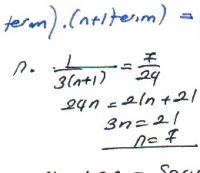 term).(n+1 term) =
n. 1/3(n+1) = 7/24
24n = 21n + 21
3n = 21
n = 7